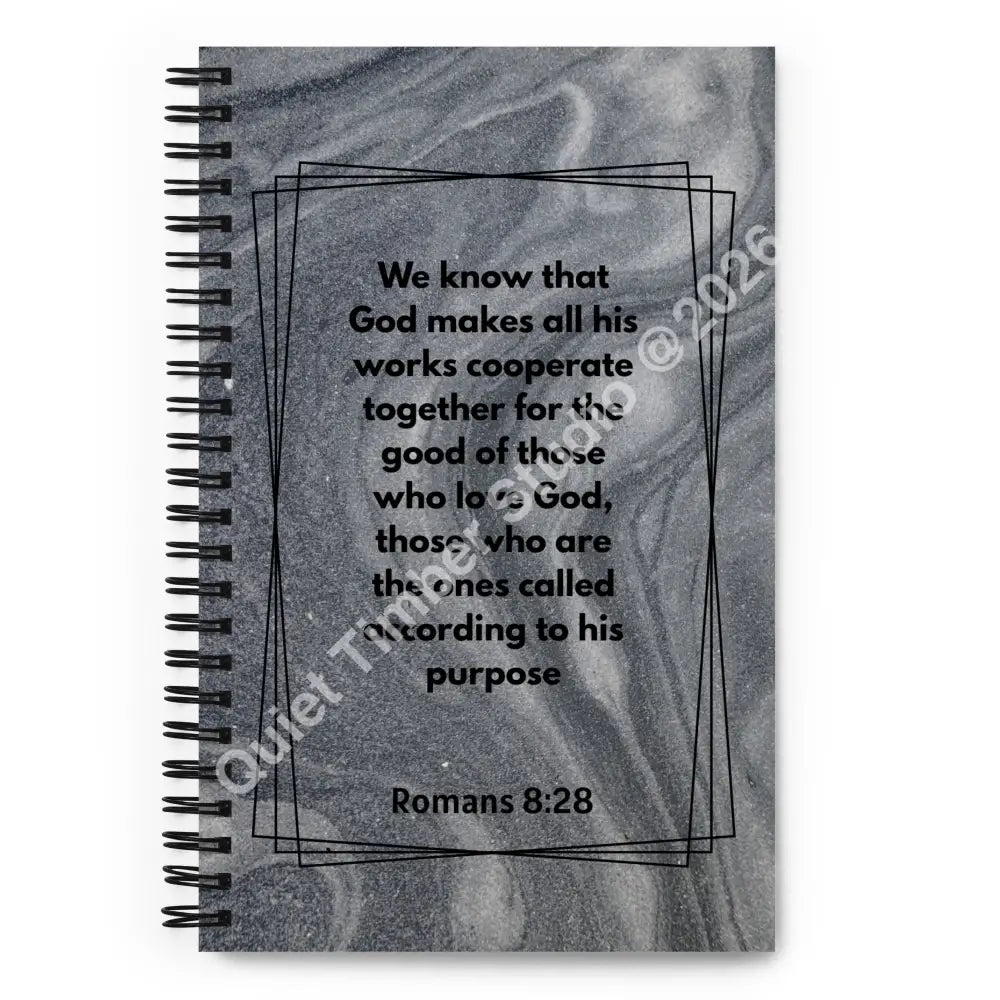 We know that
God makes all his
works cooperate
together for the
good of those
who love God,
those who are
the ones called
according to his
purpose
Romans 8:28
Quiet Timber Studio @ 2026